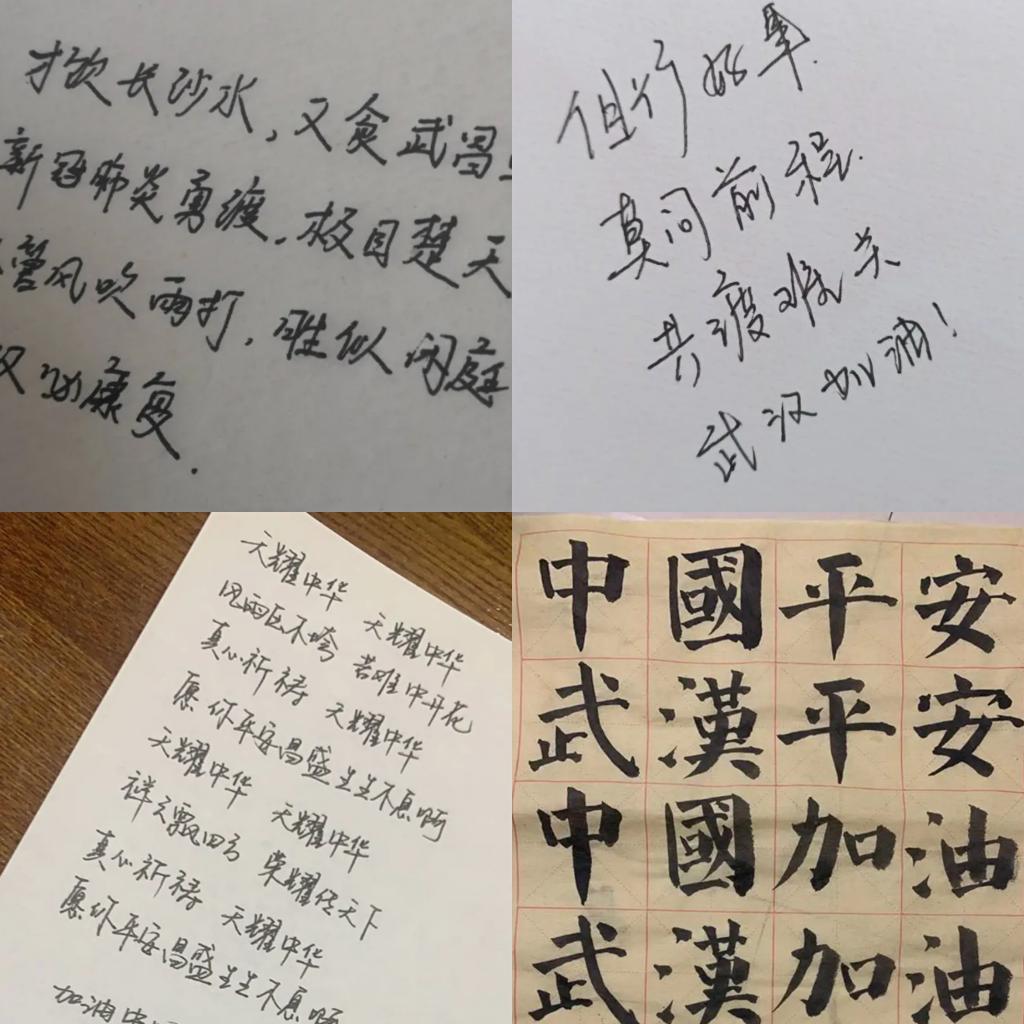 才饮长沙水,又食武昌
新冠肺炎勇渡.极目楚天
管风吹雨打.胜似闲庭
汉 康复.
但行好事.
莫问前程.
共渡难关
武汉加油!
天耀中华 天耀中华
风雨压不垮 苦难中开花
真心祈祷 天耀中华
愿你平安昌盛生生不息啊
天耀中华 天耀中华
祥云飘四方 荣耀传天下
真心祈祷 天耀中华
愿你平安昌盛生生不息啊
加油中
中國平安
武漢平安
中國加油
武漢加油